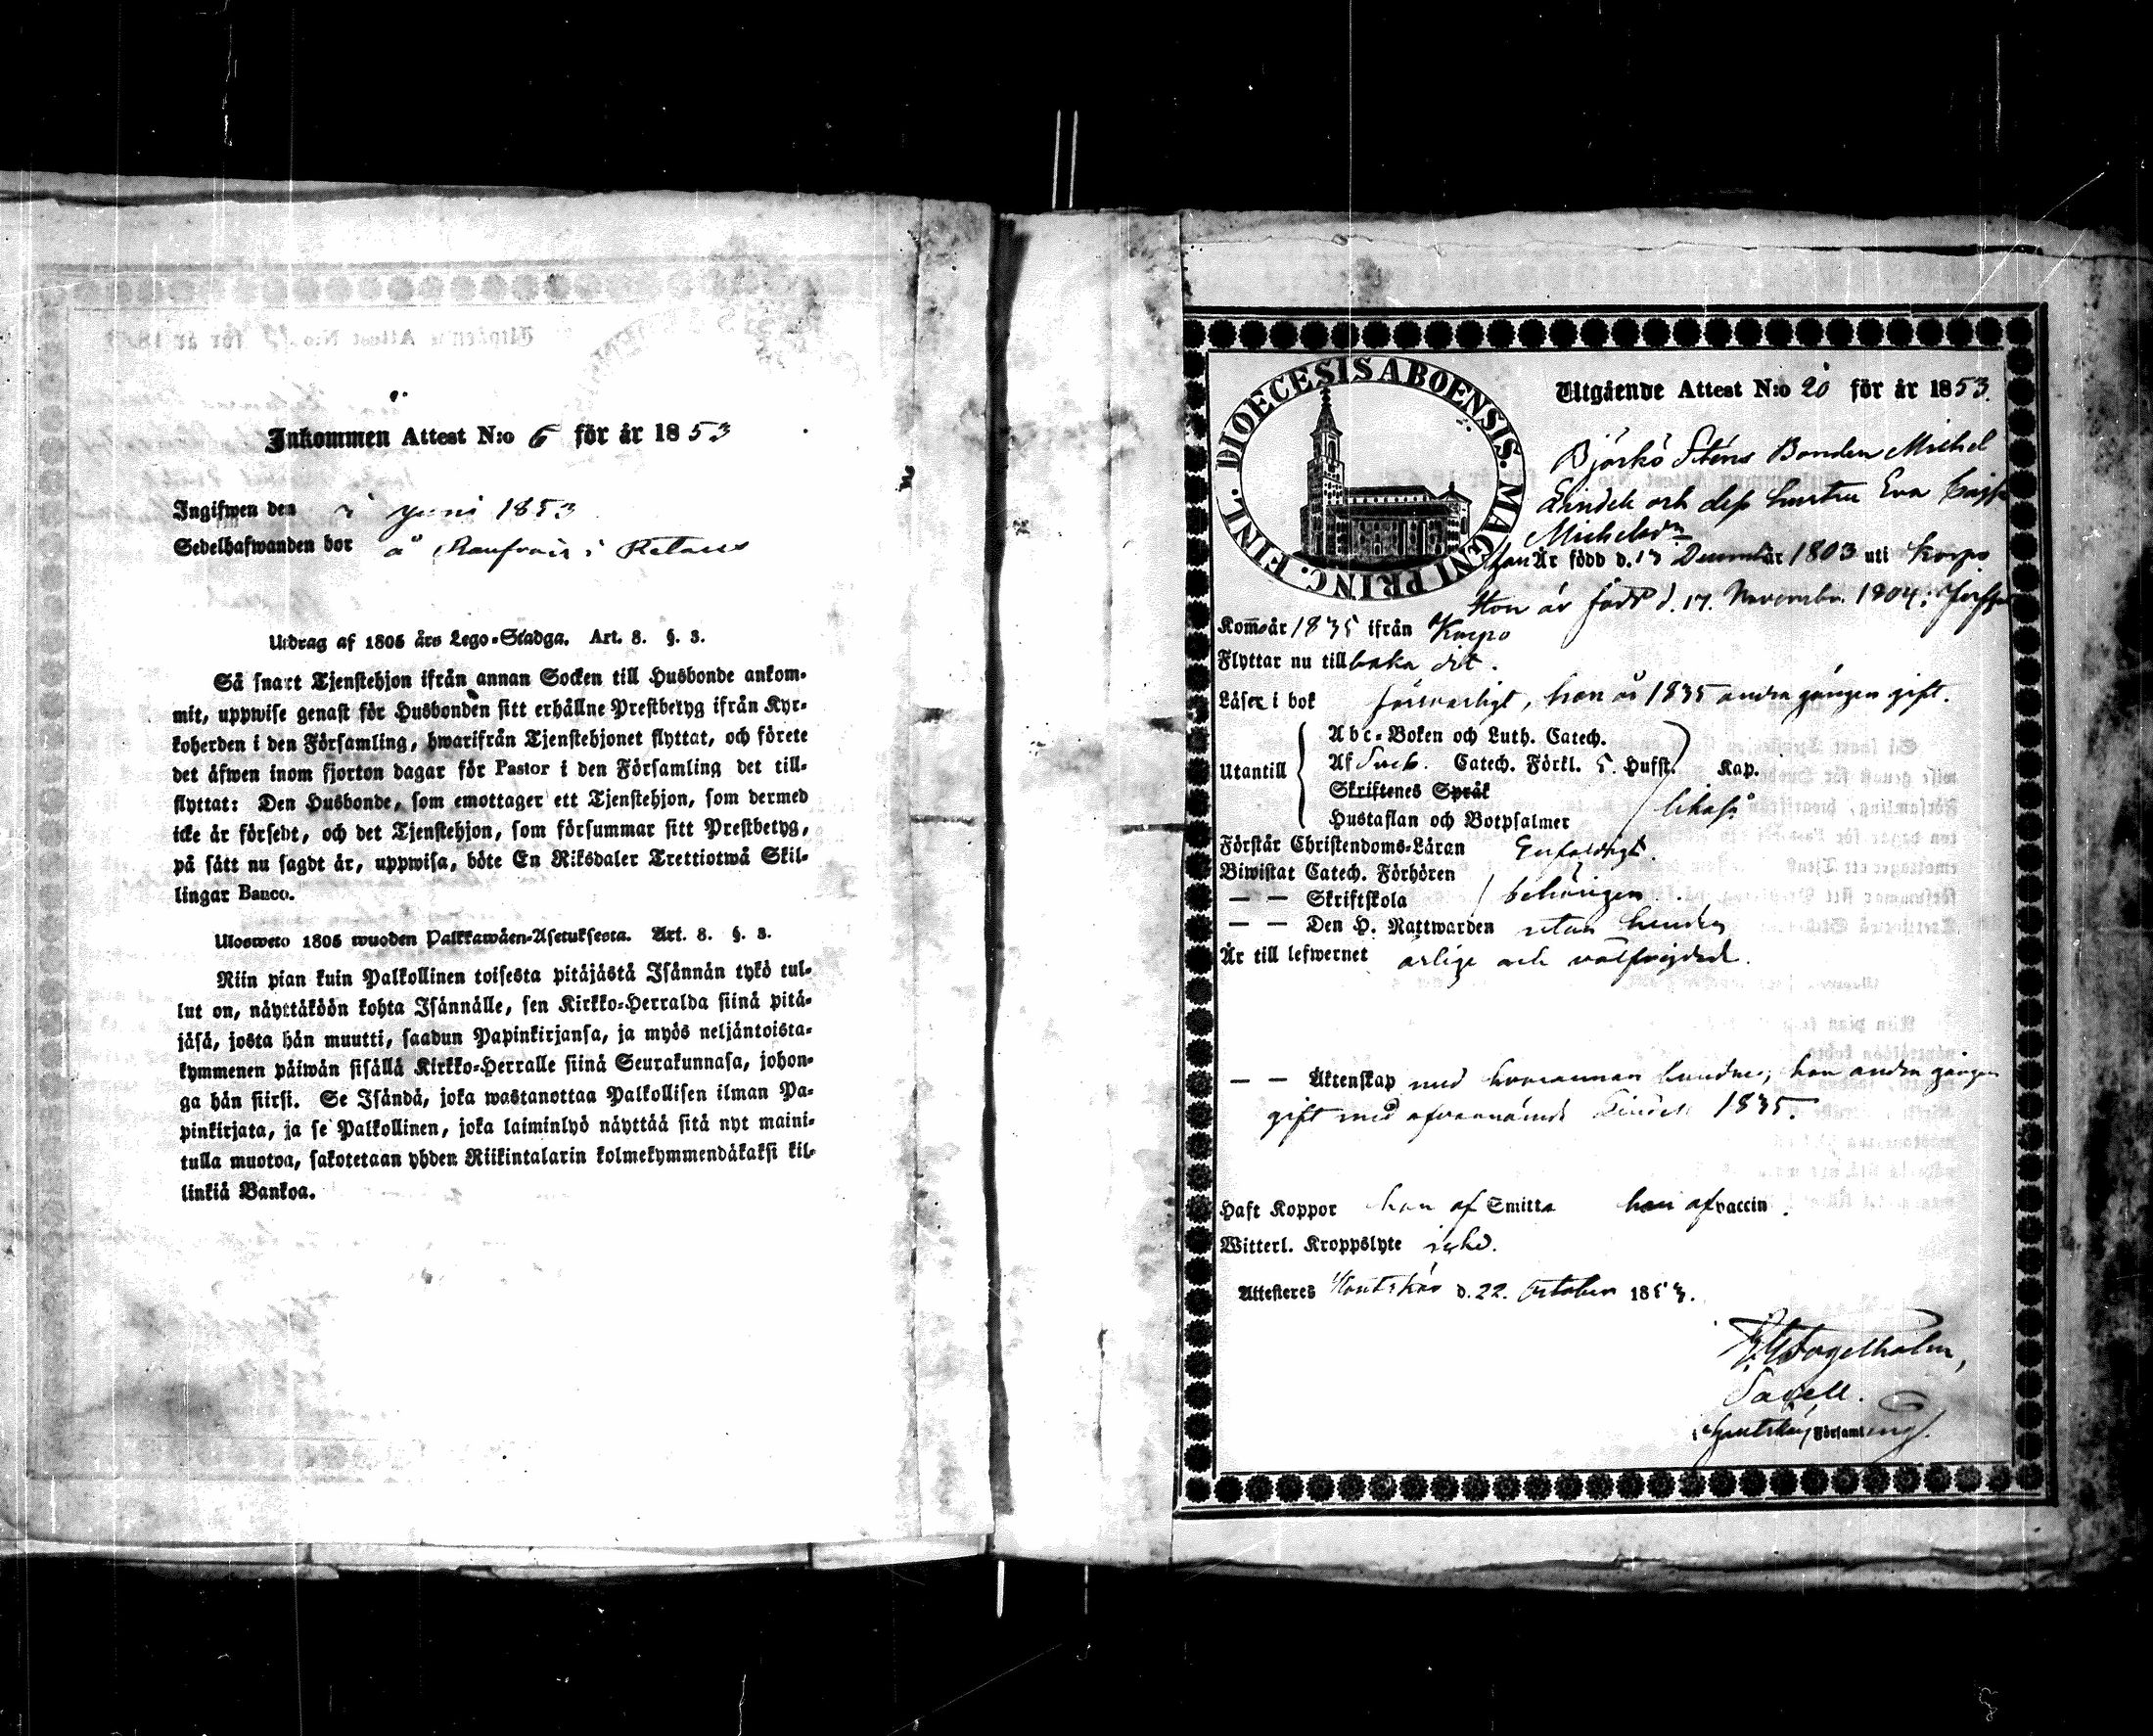 Inkommen Attest N:o 6 för år 1853
Ingifwen den Juni 1853
Sedelhafwanden bor å i Retais
Utdrag af 1805 års Lego-Stadga. Art. 8. §. 3.
Så snart Tjenstehjon ifrån annan Socken till Husbonde ankom-
mit, uppwise genast för Husbonden sitt erhållne Prestbetyg ifrån Kyr-
koherden i den Församling, hwarifrån Tjenstehjonet flyttat, och förete
det äfwen inom fjorton dagar för Pastor i den Församling det till-
flyttat: Den Husbonde, som emottager ett Tjenstehjon, som dermed
icke är försedt, och det Tjenstehjon, som försummar sitt Prestbetyg,
på sätt nu sagdt är, uppwisa, böte En Riksdaler Trettiotwå Skil-
lingar Banco.
Ulosweto 1805 wuoden Palkkawäen-Asetuksesta. Art. 8. §. 3.
Niin pian kuin Palkollinen toisesta pitäjästä Isännän tykö tul-
lut on, näyttäköön kohta Isännälle, sen Kirkko-Herralda siinä pitä-
jäsä, josta hän muutti, saadun Papinkirjansa, ja myös neljäntoista-
kymmenen päiwän sisällä Kirkko-Herralle siinä Seurakunnasa, johon-
ga hän siirsi. Se Isändä, joka wastanottaa Palkollisen ilman Pa-
pinkirjata, ja se Palkollinen, joka laiminlyö näyttää sitä nyt maini-
tulla muotoa, sakotetaan yhden Riikintalarin kolmekymmendäkaksi kil-
linkiä Bankoa.
DIOECESIS ABOENSIS. MAGNI PRINC. FINL.
Utgående Attest N:o 20 för år 1853.
Björkö Sténs Bonden Michel
Lindell och dess hustru Eva Cajsa
Michelsdr
Han Är född d. 13 December 1803 uti Korpo
Hon är född d. 17. Novembr. 1804
Kom år 1835 ifrån Korpo
Flyttar nu tillbaka dit.
Läser i bok försvarligt, hon är 1835 andra gången gift.
Abc-Boken och Luth. Catech.
Utantill Af Sveb. Catech. Förkl. 5. Hufst. Kap.
Skriftenes Språk
Hustaflan och Botpsalmer likaså
Förstår Christendoms-Läran Enfaldigt.
Biwistat Catech. Förhören
— — Skriftskola behörigen
— — Den H. Nattwarden utan hinder
Är till lefwernet ärlige och välfrejdad.
— — Äktenskap med hvarannan bundne; hon andra gången
gift med ofvannämnde Lindell 1835.
Haft Koppor han af Smitta hon af vaccin.
Witterl. Kroppslyte icke.
Attesteres Houtskär d. 22. October 1853.
Fogelholm,
Sacell.
i Houtskär Församling.